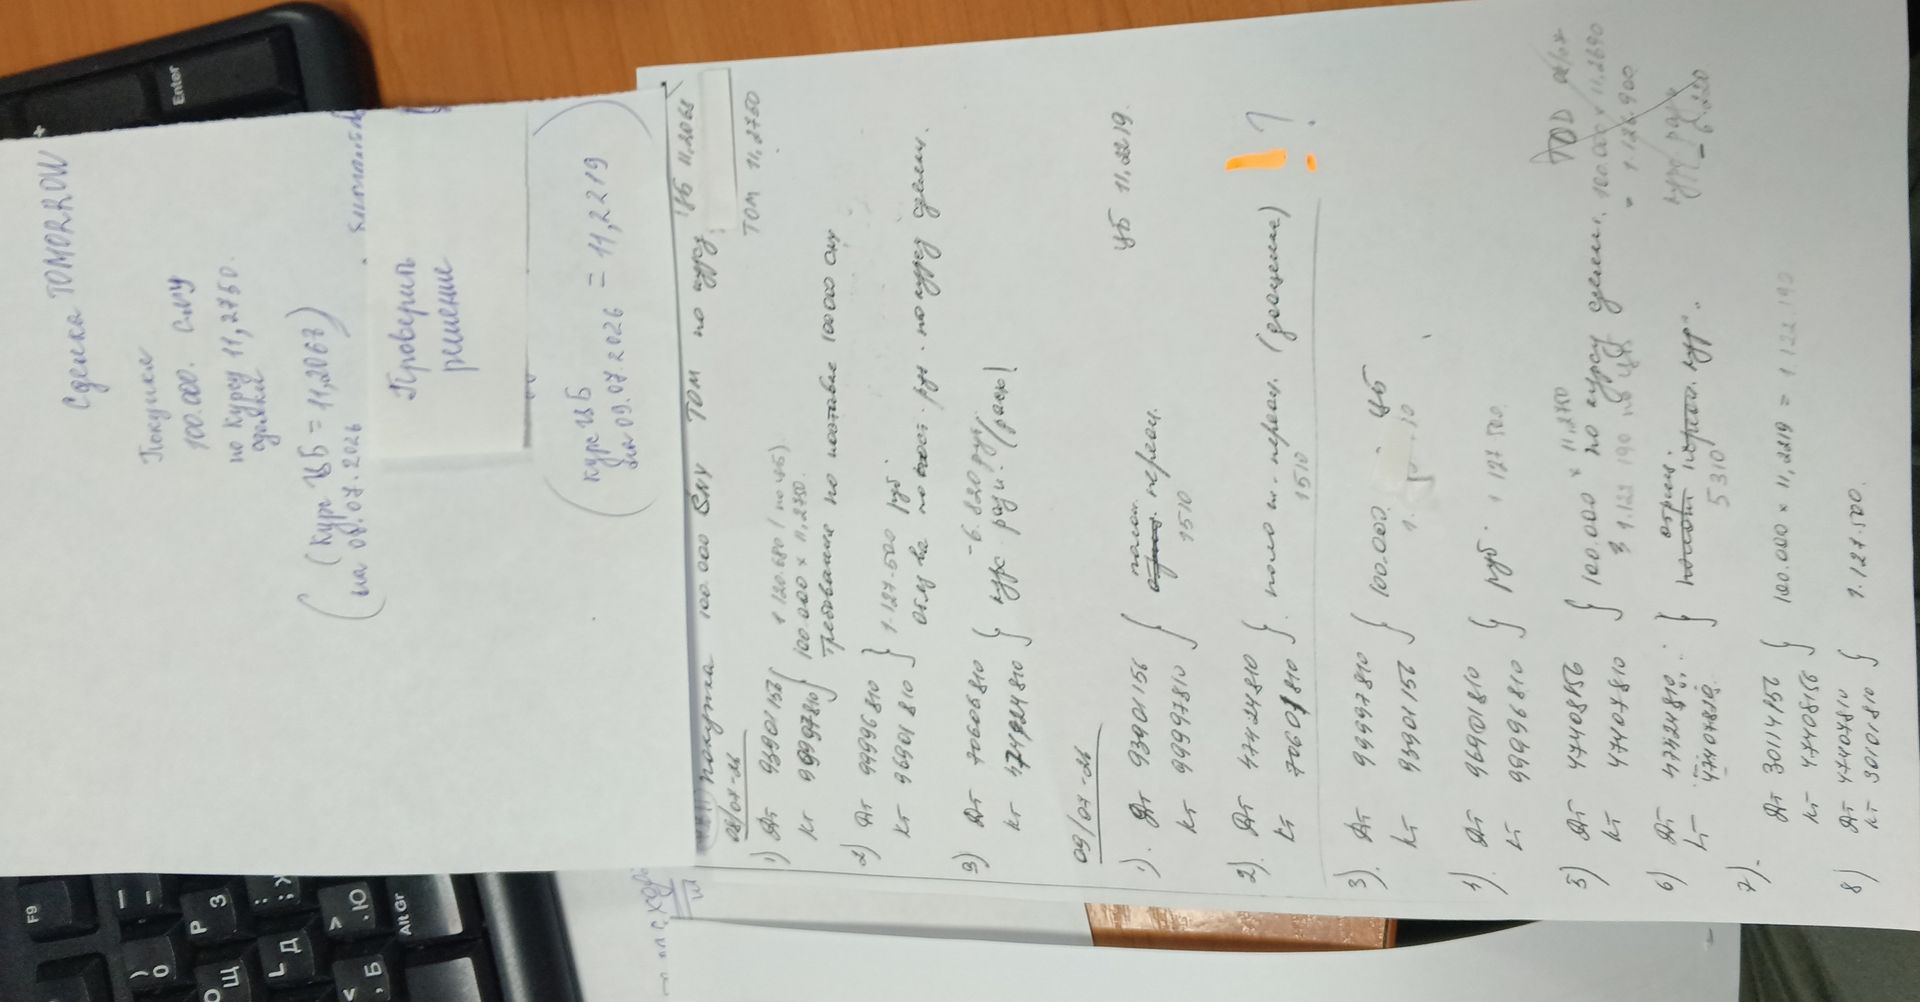 Сделка TOMORROW
Покупка
100.000. CNY
по курсу 11,2750.
сделки
(Курс ЦБ = 11,2068)
на 08.07.2026
Проверить
решение
(Курс ЦБ = 11,2219)
на 09.07.2026
покупка 100.000 CNY TOM по курсу ЦБ 11,2068
TOM 11,2750
08/07-26
1) Дт 93901156 1.120.680 (по ЦБ)
Кт 99997810 } 100.000 × 11,2750.
Требование по поставке 100000 CNY
2) Дт 99996810 } 1.127.500 руб
Кт 96901810
по курсу сделки.
3) Дт 70606810 } -6.820 руб
Кт 47424810 курс. разн. (расх)
09/07-26
ЦБ 11,2219.
1). Дт 93901156 } полож. перео.
Кт 99997810 1510
2). Дт 47424810 } полож. переоц. (дооценка) ! ?
Кт 70601810 1510
3). Дт 99997810 } 100.000. ЦБ
Кт 93901156
4). Дт 96901810 } руб. 1 127 500.
Кт 99996810
5) Дт 47408156 } 100.000 × 11,2750
Кт 47407810 по курсу сделки.
1.122 190 по ЦБ
TOD 08/07
100.000 × 11,2690
= 1.126.900
6) Дт 47424810 } отриц. кур.
Кт 47407810 5310
- 6.220
7). Дт 30114156 } 100.000 × 11,2219 = 1.122.190
Кт 47408156
8) Дт 47407810 } 1.127.500.
Кт 30101810
F9
Enter
Alt Gr